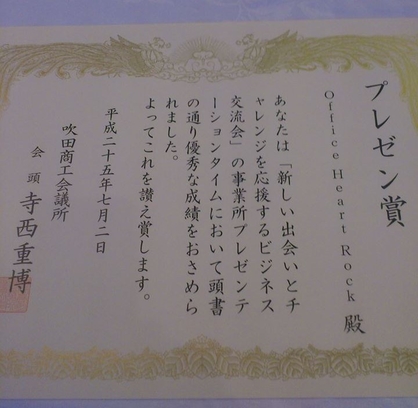 プレゼン賞
Office Heart Rock 殿
あなたは「新しい出会いとチ
ャレンジを応援するビジネス
交流会」の事業所プレゼンテ
ーションタイムにおいて頭書
の通り優秀な成績をおさめら
れました。
よってこれを讃え賞します。
平成二十五年七月二日
吹田商工会議所
会頭 寺西重博